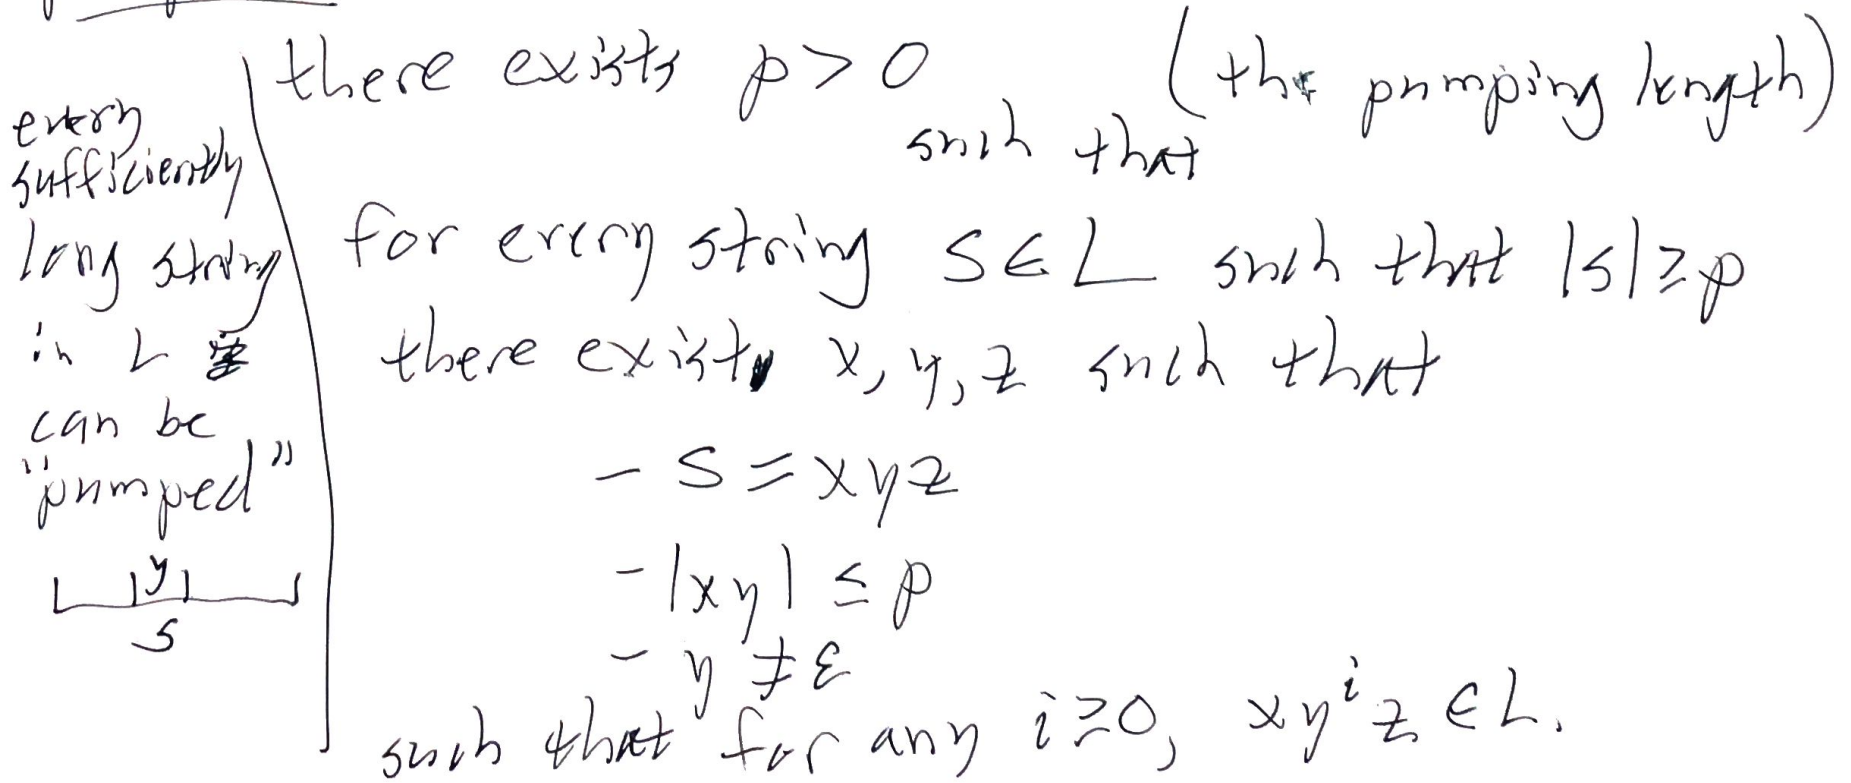 every
sufficiently
long string
in L
can be
"pumped"
y
s
there exists p > 0 (the pumping length)
such that
for every string s ∈ L such that |s| ≥ p
there exist x, y, z such that
- s = xyz
- |xy| ≤ p
- y ≠ ε
such that for any i ≥ 0, xyⁱz ∈ L.